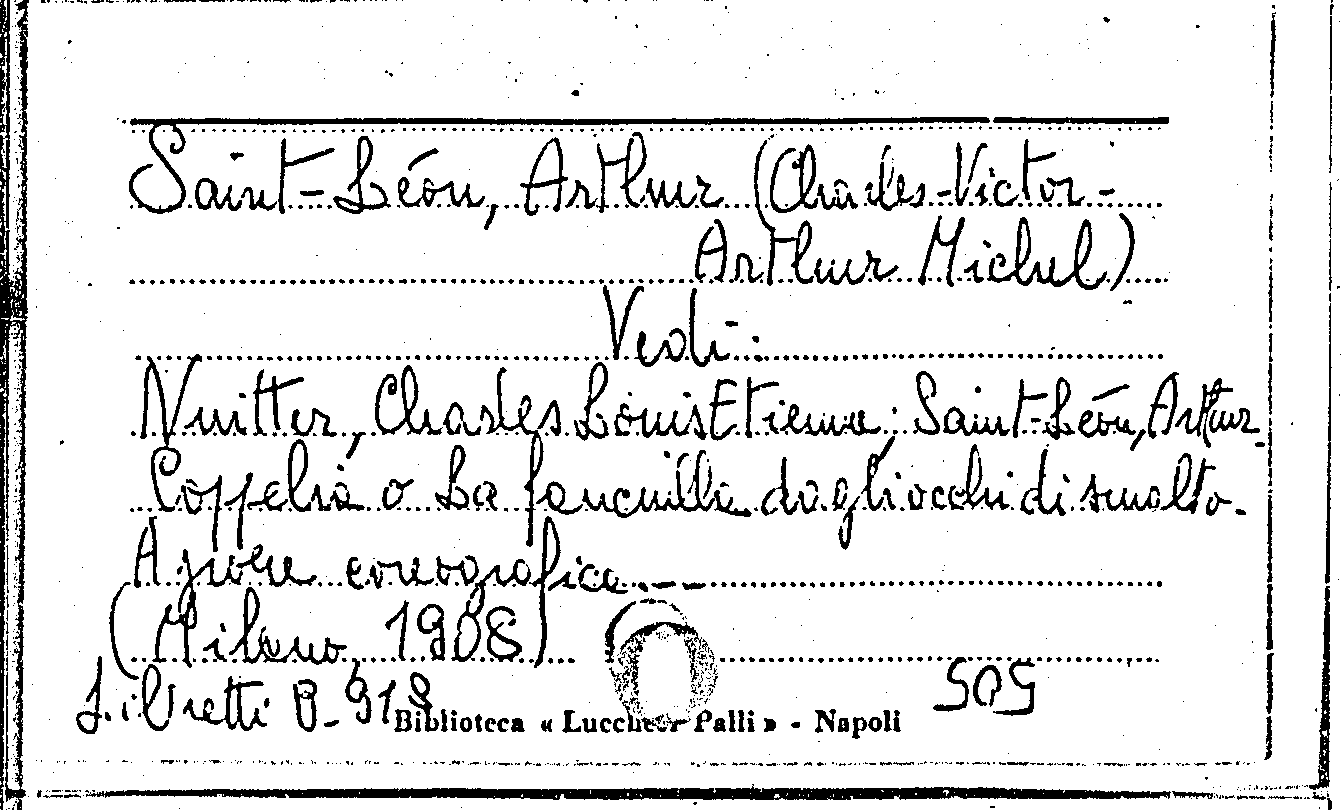 Saint-Léon, Arthur (Charles-Victor-
Arthur Michel)
Vedi:
Nuitter, Charles Louis Etienne; Saint-Léon, Arthur.
Coppelia o La fanciulla dagli occhi di smalto.
Azione coreografica.--
(Milano, 1908)
Libretti B-918 505
Biblioteca « Lucchesi Palli » - Napoli